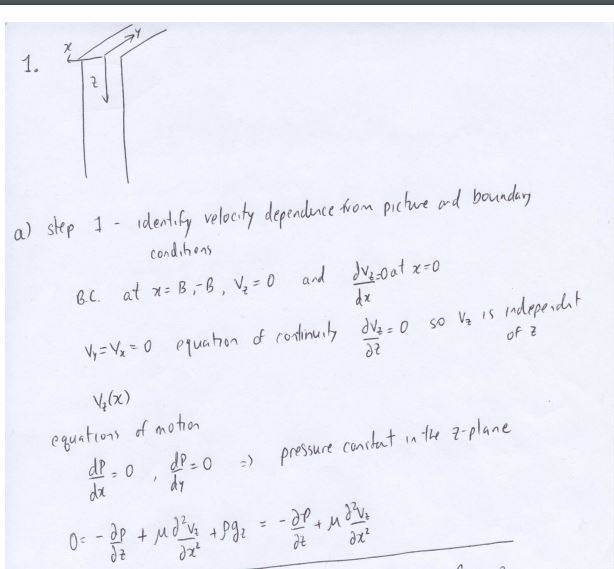 1.
x
y
z
a) step 1 - identify velocity dependence from picture and boundary
conditions
B.C. at x = B, -B, V_z = 0 and dV_z/dx = 0 at x=0
V_y = V_x = 0 equation of continuity ∂V_z/∂z = 0 so V_z is independent
of z
V_z(x)
equations of motion
dP/dx = 0 , dP/dy = 0 => pressure constant in the z-plane
0 = - ∂p/∂z + μ ∂²v_z/∂x² + ρg_z = - ∂P/∂z + μ ∂²v_z/∂x²